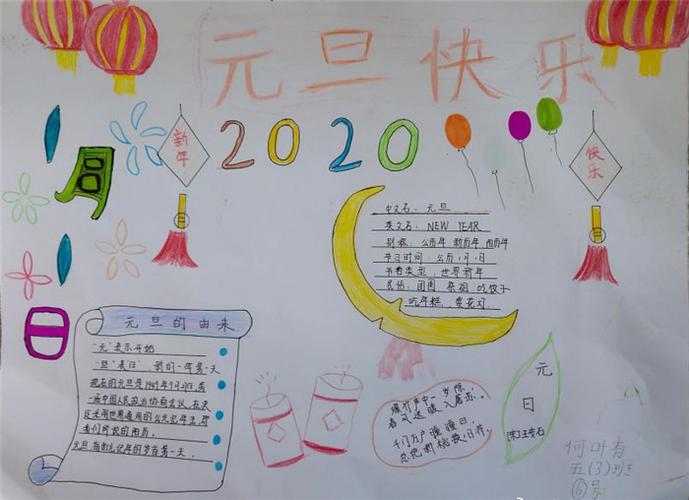 元旦快乐
1
月
1
日
新年
2020
快乐
中文名：元旦
英文名：NEW YEAR
别称：公历年 新历年 阳历年
节日时间：公历1月1日
节日类型：世界新年
民俗：团圆 祭祖 吃饺子
吃年糕 赏花灯
元旦的由来
"元"表示开始
"旦"表"日"，
现在的元旦是1949年9月27日，第
一届中国人民政治协商会议，在决
定采用世界通用的公元纪年法，即
我们所说的阳历。
元旦，指公元纪年的岁首第一天。
爆竹声中一岁除，
春风送暖入屠苏。
千门万户曈曈日，
总把新桃换旧符。
元
日
[宋]王安石
何叶有
五(3)班
⑥号